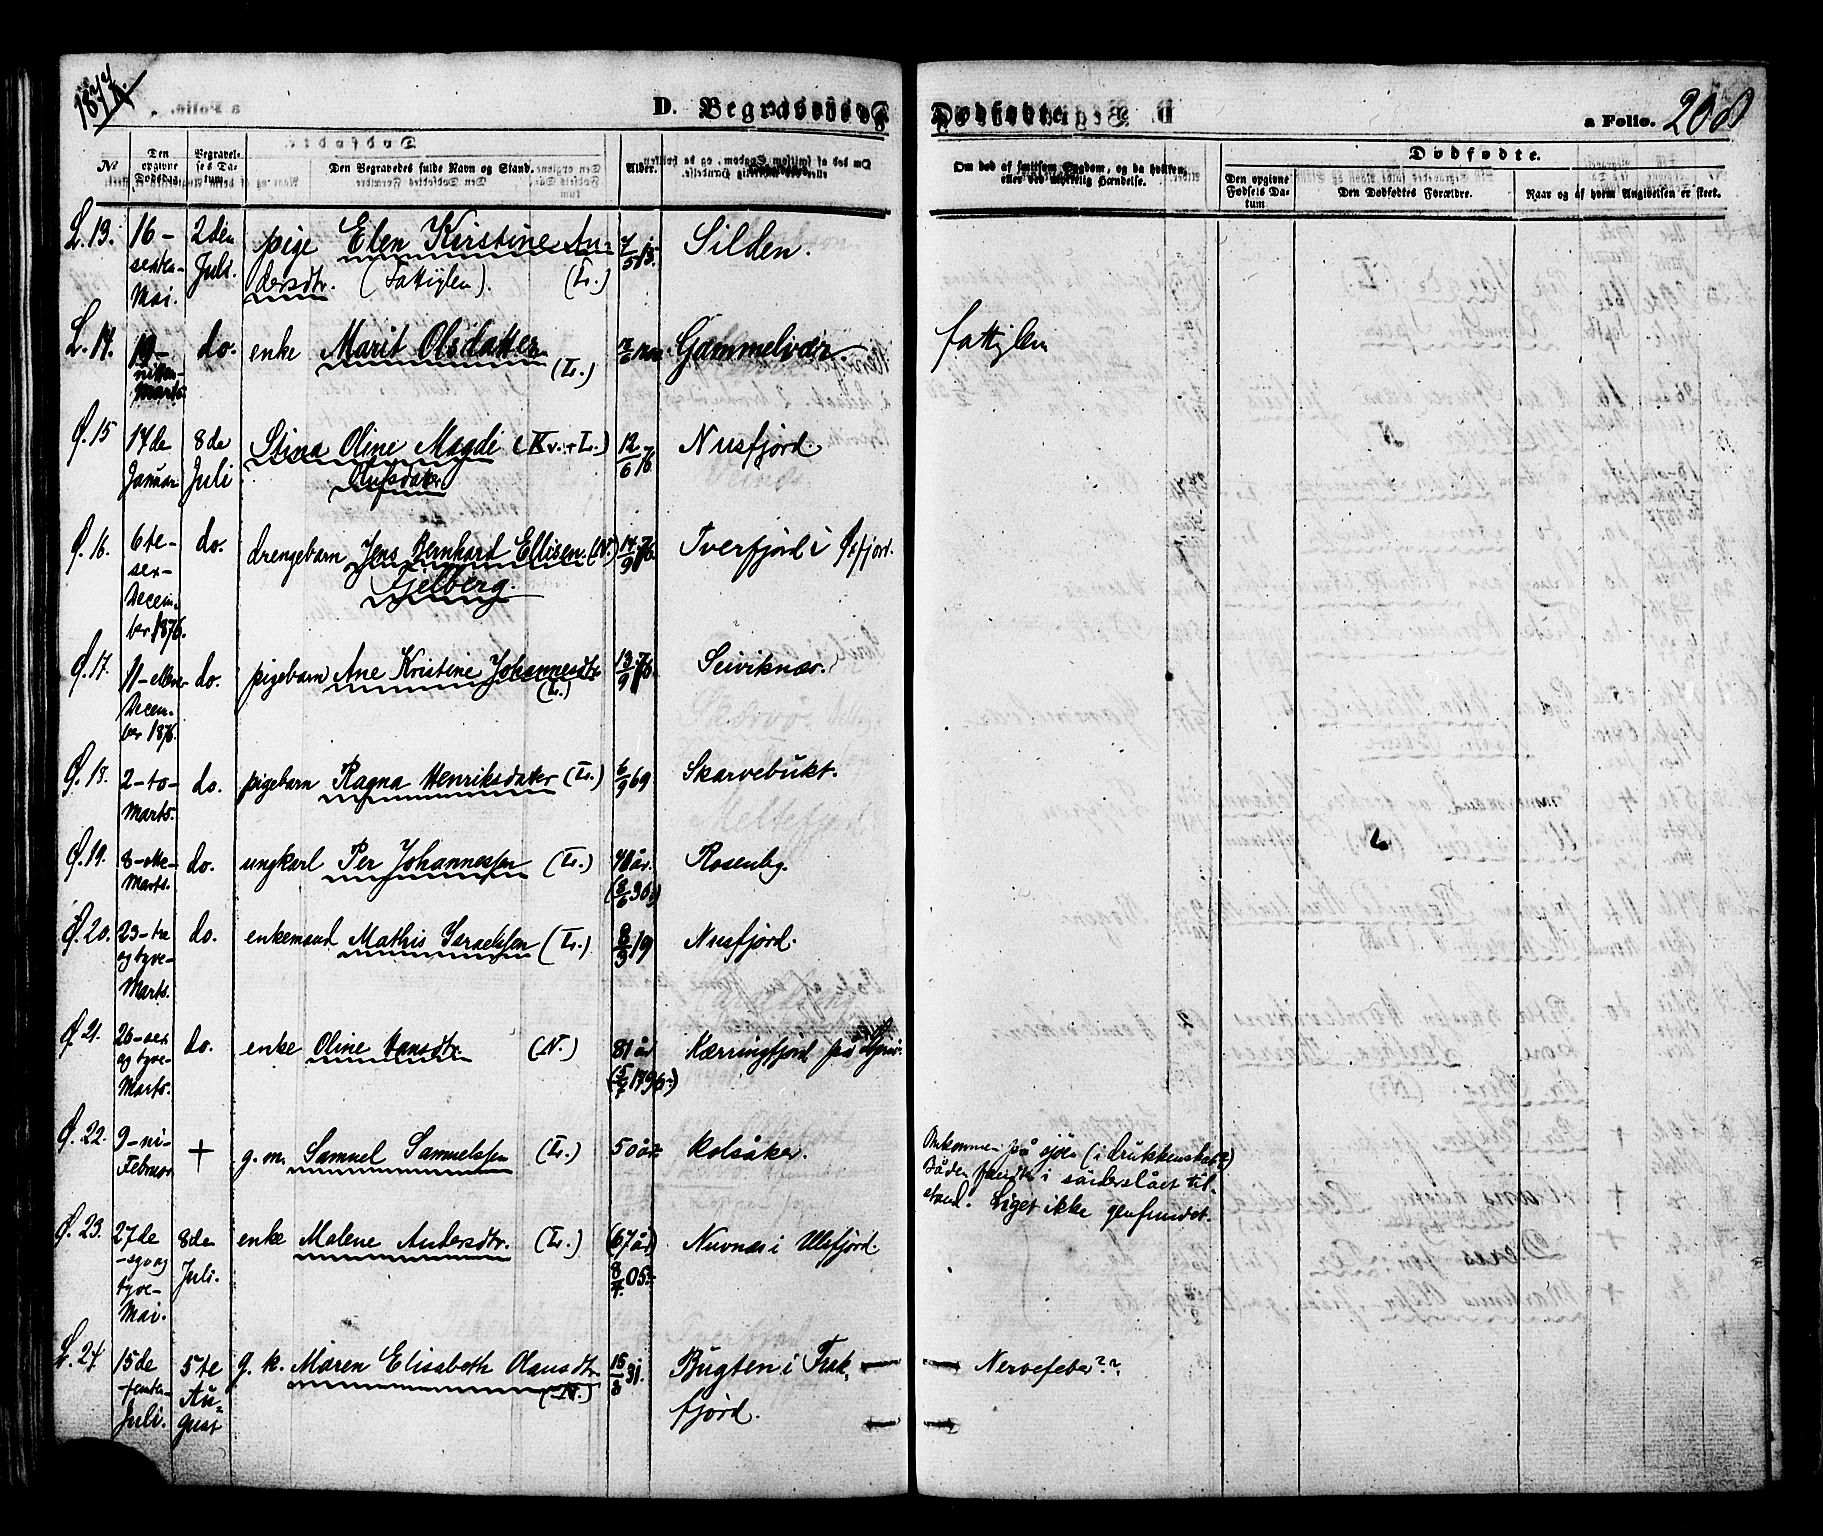 1877.
D. Begravede og Dødfødte.
a Folio. 208
No
Den opgivne Dødsdag.
Begravelses Datum
Den Begravedes fulde Navn og Stand.
Alder.
Om død af smitsom Sygdom, og da hvilken; eller ved ulykkelig Hændelse.
Dødfødte.
Den opgivne Fødsels Datum
Den Dødfødtes Forældre.
Naar og af hvem Angivelsen er skeet.
L. 13. 16 - sexten - Mai. 2den Juli. pige Elen Kirstine Andersdtr. (Fattiglem). (L.) 7/5 13. Silden.
L. 14. 19 - nitten - Marts. do. enke Marit Olsdatter (L.) Gammelvær. fattiglem
Ø. 15 14de Januar 8de Juli Stina Oline Magde (Kv. + L.) 12/6 76 Nusfjord.
Olufsdatter
Ø. 16. 6te - sex - December 1876. do. drengebarn Jens Bernhard Ellisen (N.) 14/9 76 Tverfjord i Øxfjord.
Fjelberg.
Ø. 17. 11 - elleve December 1876. do. pigebarn Ane Kristine Johannesdtr (L.) 13/9 76 Seiviknæs.
Ø. 18. 2 - to - Marts. do. pigebarn Ragna Henriksdatter (L.) 6/9 69 Skarvebukt.
Ø. 19. 8 - otte - Marts. do. ungkarl Per Johannessen (L.) 41 år. (8/6 36) Rosenbg.
Ø. 20. 23 - tre og tyve - Marts. do. enkemand Mathis Israelssen (L.) 8/3 19 Nusfjord.
Ø. 21. 26 - sex og tyve - Marts. do. enke Oline Hansdtr. (N.) 81 år (5/7 1796) Kærringfjord på Stjernø.
Ø. 22. 9 - ni - Februar + g. m. Samuel Samuelssen (L.) 50 år Kolsåker. Omkommen på sjøen (i drukkenskab?)
Båden fandtes i sønderslået til-
stand. Liget ikke gjenfundet.
Ø. 23. 27de - syv og tyve - Mai. 8de Juli. enke Malene Andersdtr. (L.) (67 år) 8/7 05 Nuvnæs i Ulsfjord.
L. 24 15de - femten - Juli. 5te August g. k. Maren Elisabeth Olausdtr. (N.) 15/3 31. Bugten i Frak-
fjord. Nervefeber??